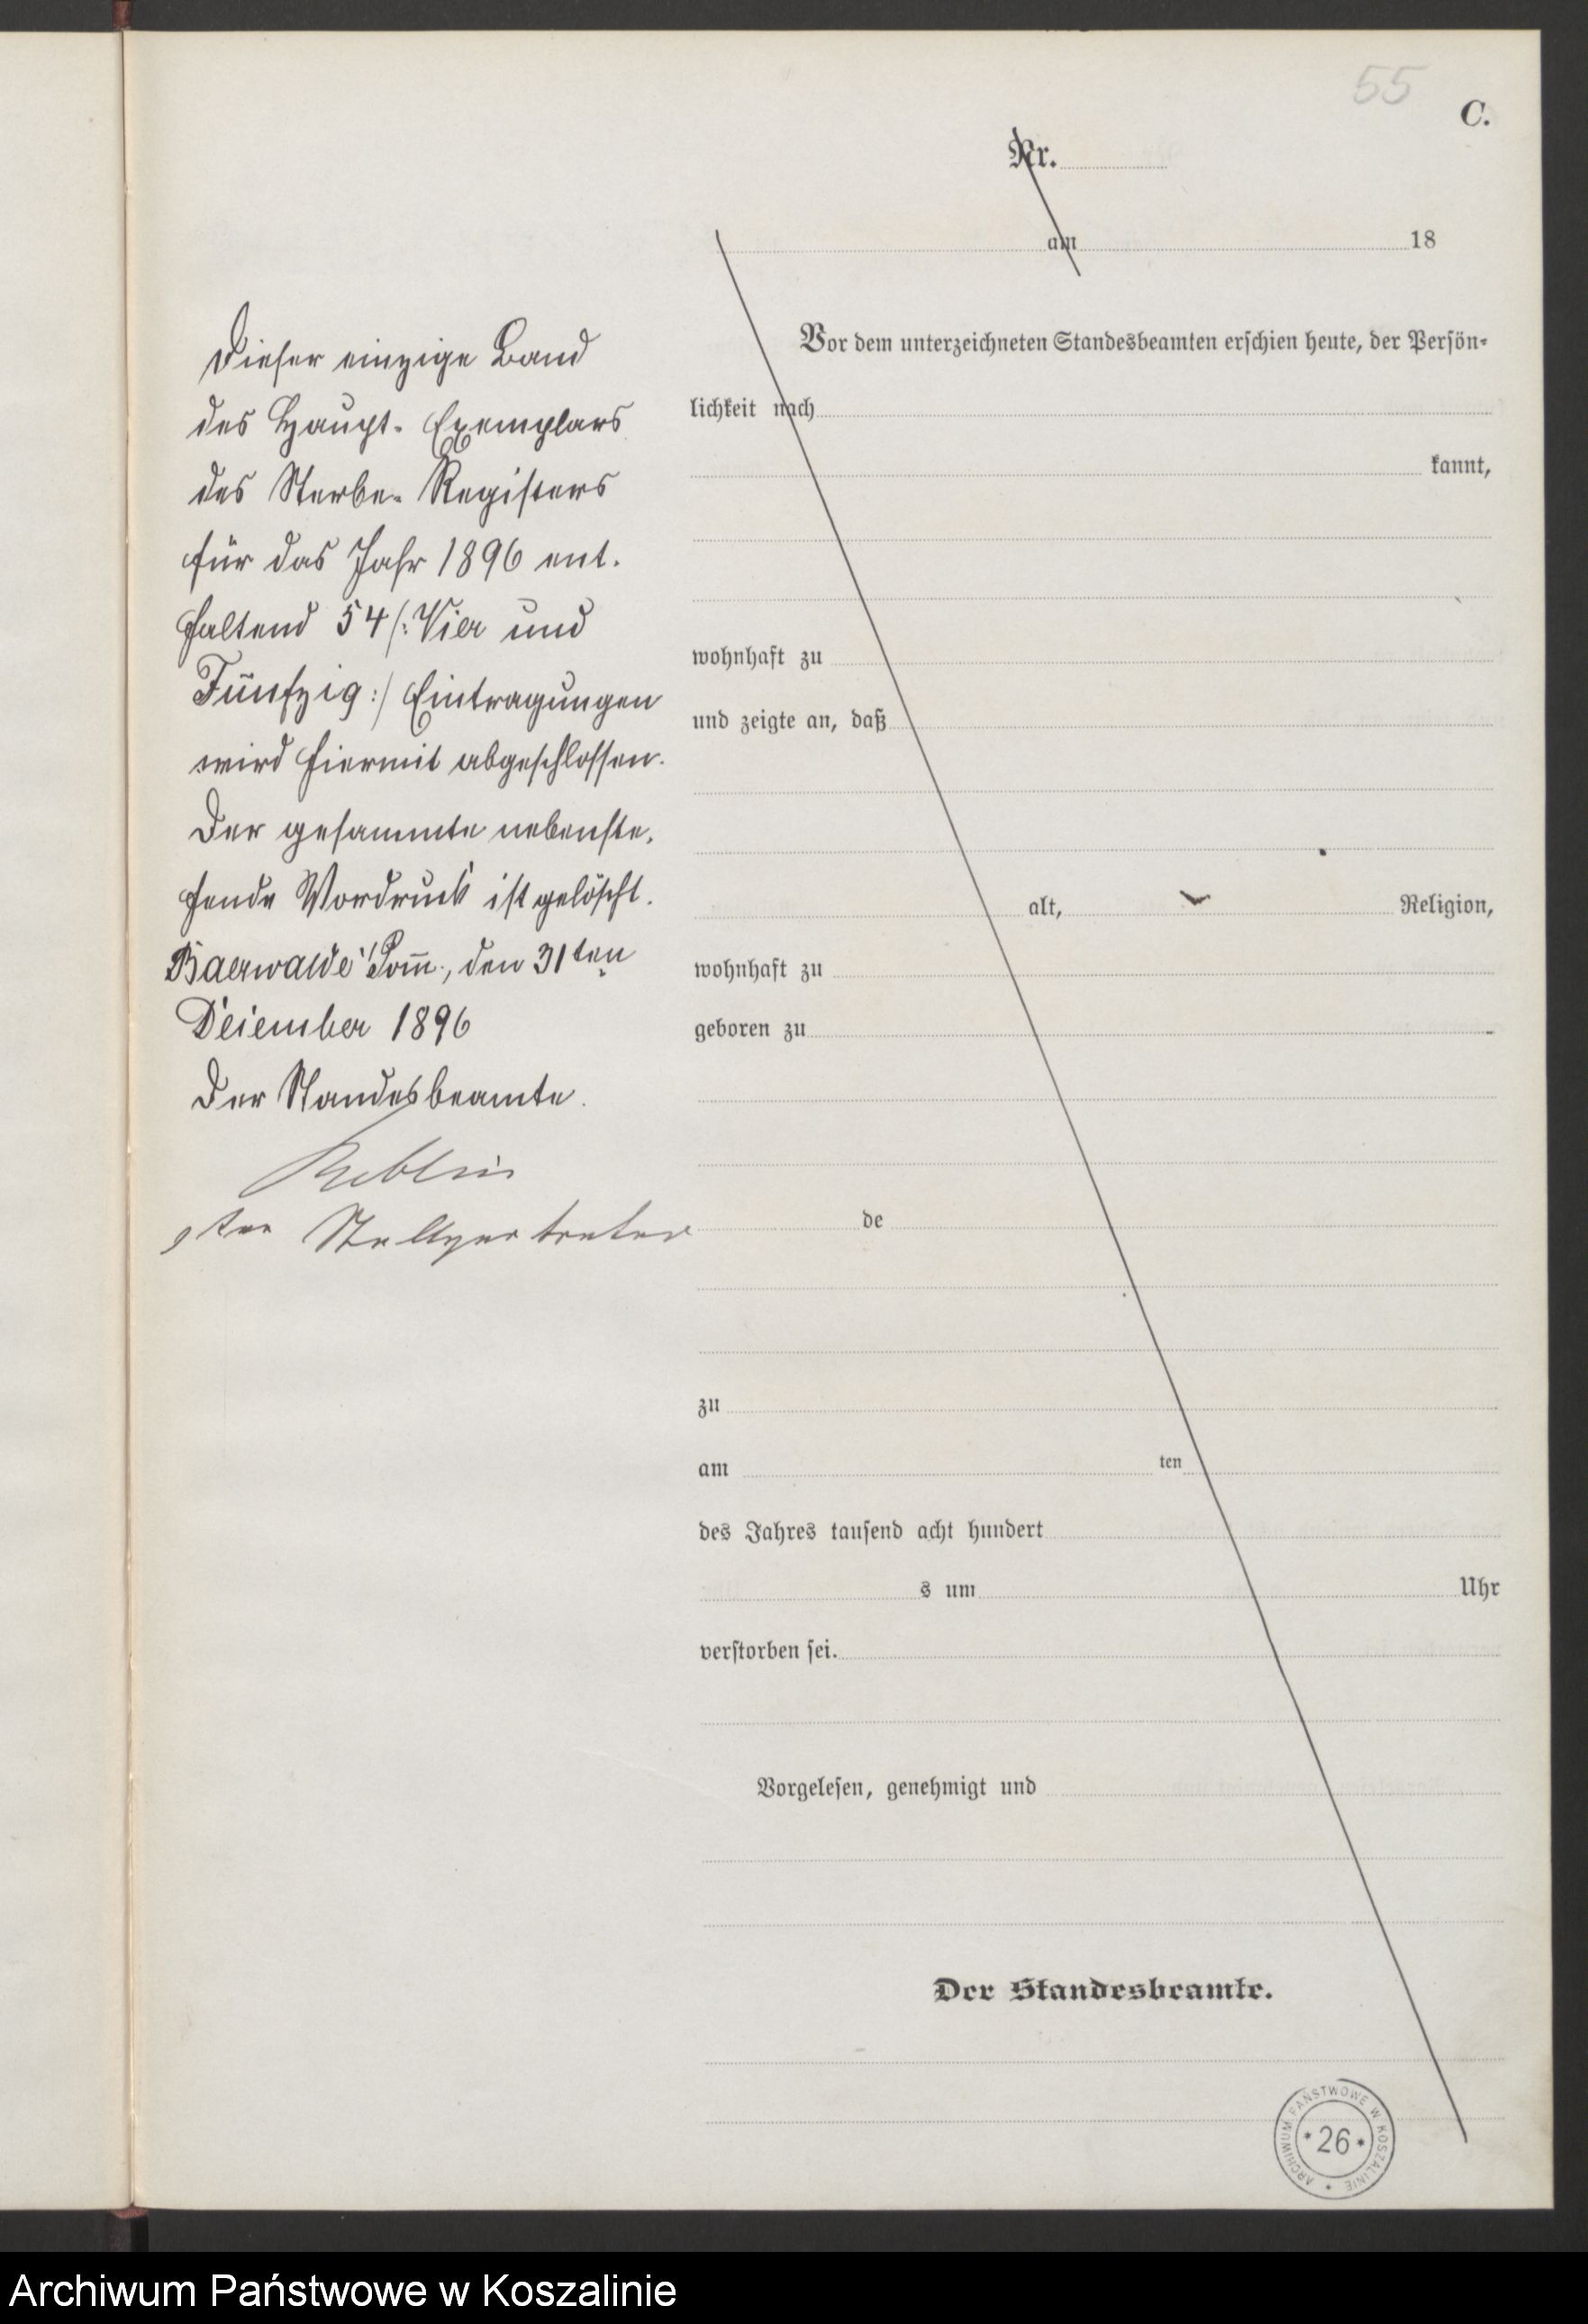 55
C.
Nr.
am 18
Dieser einzige Band
des Haupt-Exemplars
des Sterbe-Registers
für das Jahr 1896 ent-
haltend 54 /: Vier und
Fünfzig :/ Eintragungen
wird hiermit abgeschlossen.
Der gesammte nebenste-
hende Vordruck ist gelöscht.
Baerwalde Pom̄., den 31ten
Dezember 1896
Der Standesbeamte.
Reblin
1ster Stellvertreter
Vor dem unterzeichneten Standesbeamten erschien heute, der Persön-
lichkeit nach
kannt,
wohnhaft zu
und zeigte an, daß
alt, Religion,
wohnhaft zu
geboren zu
de
zu
am ten
des Jahres tausend acht hundert
s um Uhr
verstorben sei.
Vorgelesen, genehmigt und
Der Standesbeamte.
ARCHIWUM PAŃSTWOWE W KOSZALINIE
* 26 *
Archiwum Państwowe w Koszalinie